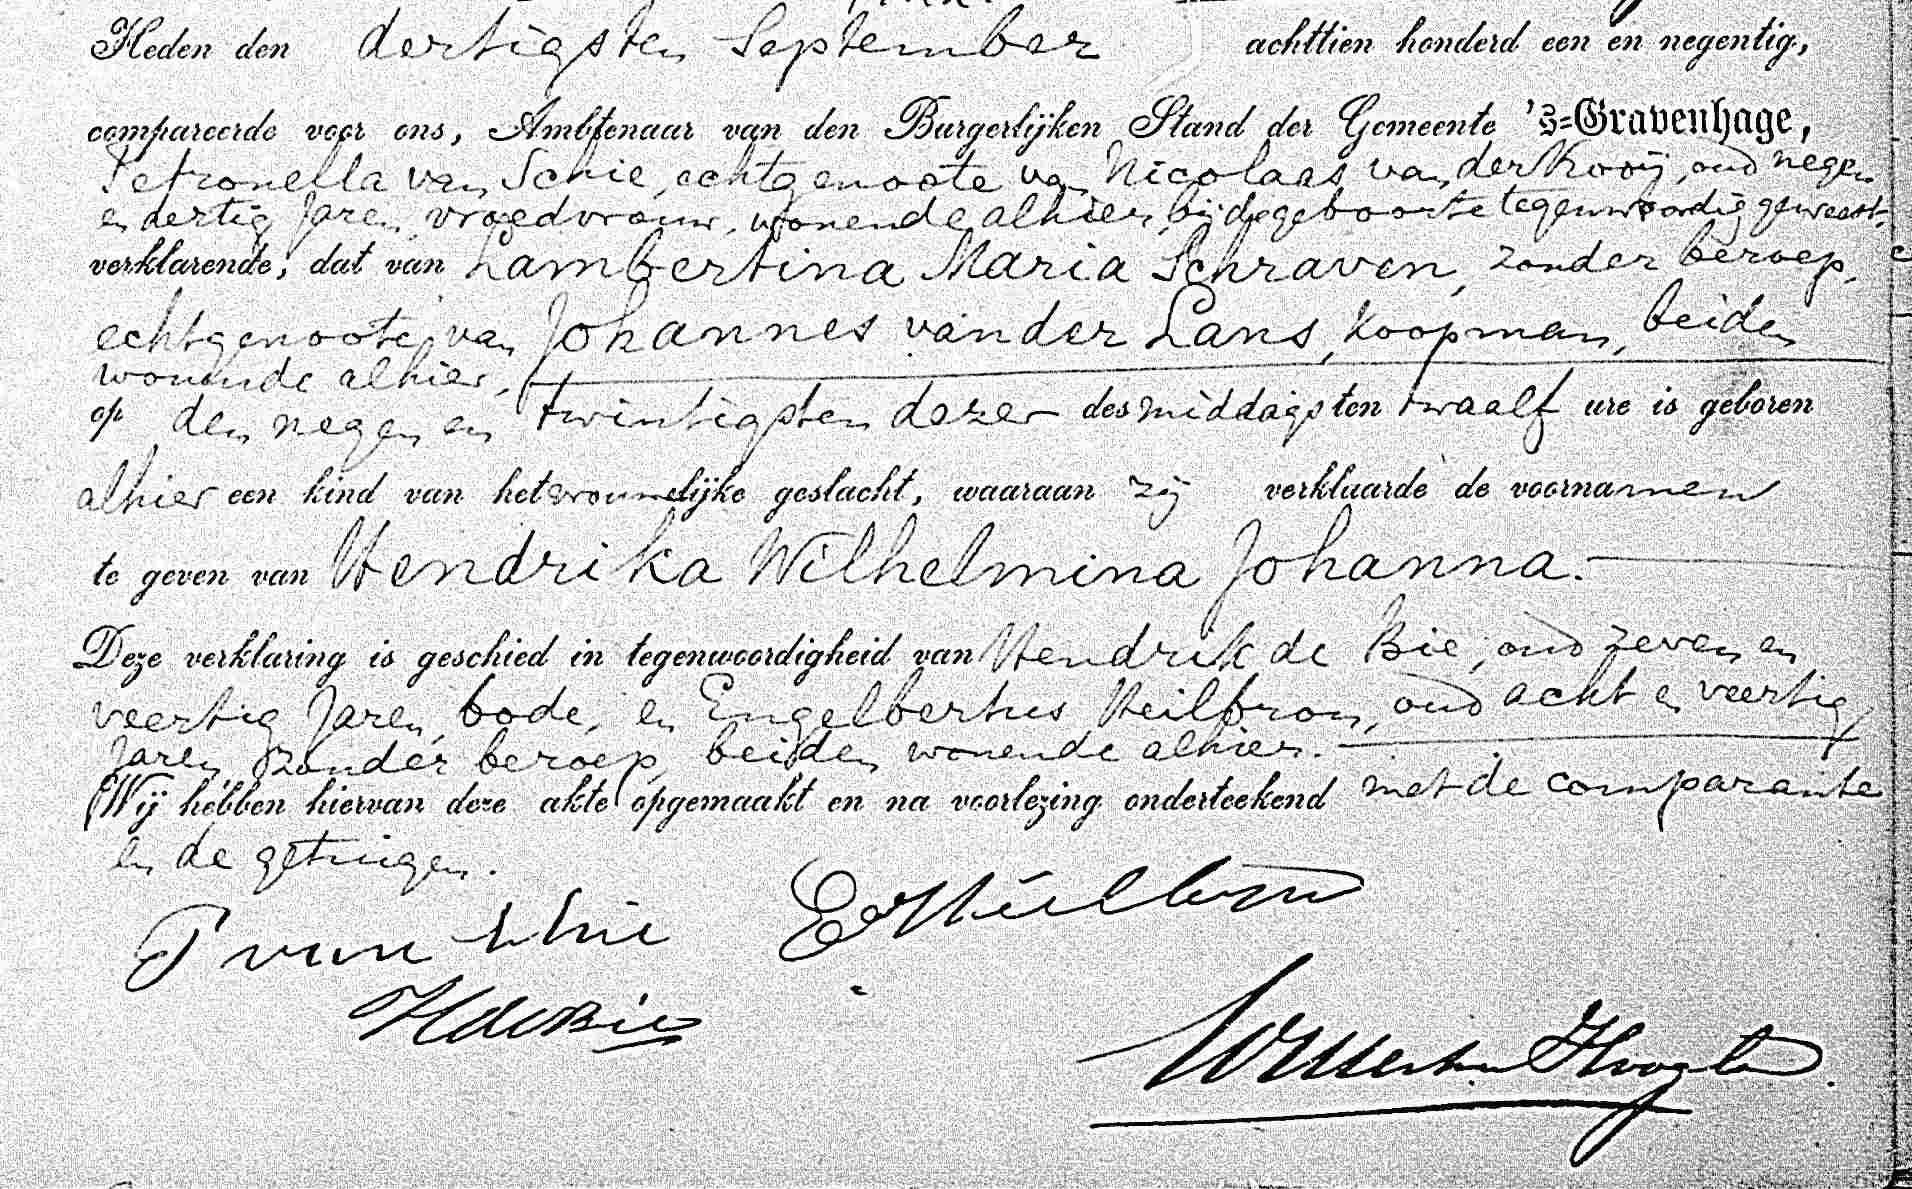 Heden den dertigsten September achttien honderd een en negentig,
compareerde voor ons, Ambtenaar van den Burgerlijken Stand der Gemeente 's-Gravenhage,
Petronella van Schie, echtgenoote van Nicolaas van der Kooij, oud negen
en dertig Jaren, vroedvrouw, wonende alhier, bij de geboorte tegenwoordig geweest,
verklarende, dat van Lambertina Maria Schraven, zonder beroep,
echtgenoote van Johannes van der Lans, koopman, beiden
wonende alhier,
op den negen en twintigsten dezer des middags ten twaalf ure is geboren
alhier een kind van het vrouwelijke geslacht, waaraan zij verklaarde de voornamen
te geven van Hendrika Wilhelmina Johanna.
Deze verklaring is geschied in tegenwoordigheid van Hendrik de Bie, oud zeven en
veertig Jaren, bode, en Engelbertus Heilbron, oud acht en veertig
Jaren, zonder beroep, beiden wonende alhier.
Wij hebben hiervan deze akte opgemaakt en na voorlezing onderteekend met de comparante
en de getuigen.
P van Schie E Heilbron
H de Bie